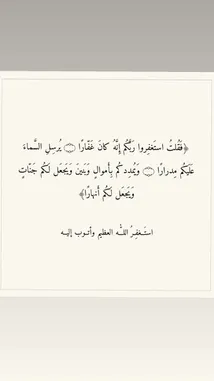 ﴿فَقُلتُ استَغفِروا رَبَّكُم إِنَّهُ كانَ غَفّارًا ۝ يُرسِلِ السَّماءَ
عَلَيكُم مِدرارًا ۝ وَيُمدِدكُم بِأَموالٍ وَبَنينَ وَيَجعَل لَكُم جَنّاتٍ
وَيَجعَل لَكُم أَنهارًا﴾
استَغفِرُ اللّٰه العظيم وأتوب إليه